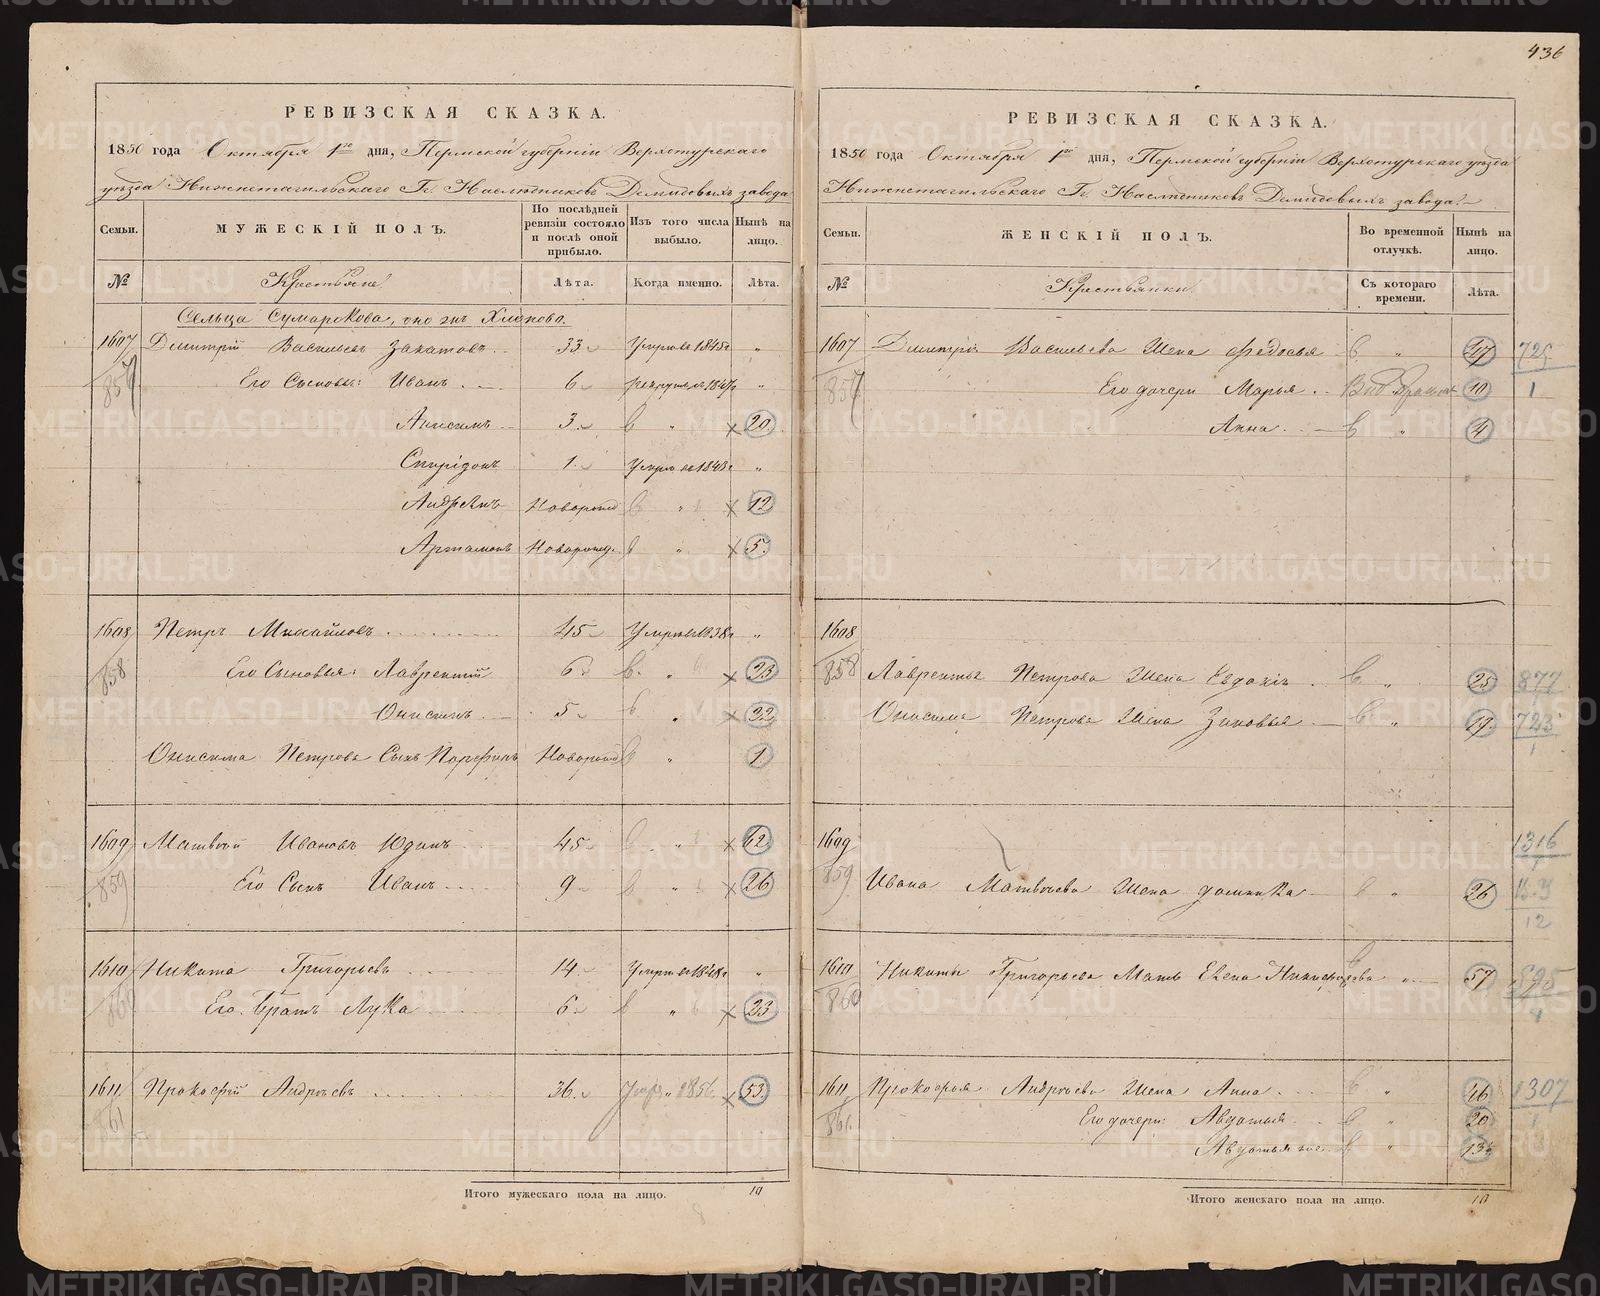 436
РЕВИЗСКАЯ СКАЗКА.
1850 года Октября 1го дня, Пермской губерніи Верхотурскаго
уѣзда Нижнетагильскаго Гг. Наслѣдниковъ Демидовыхъ завода
Семьи. МУЖЕСКІЙ ПОЛЪ. По послѣдней ревизіи состояло и послѣ оной прибыло. Изъ того числа выбыло. Нынѣ на лицо.
№ Крестьяне Лѣта. Когда именно. Лѣта.
Сельца Сумарокова, оно жъ Хлопово.
1607 Димитрій Васильевъ Закатовъ 33 Умре въ 1845 „
857 Его Сыновья: Иванъ 6 „
Анисимъ 3 „ 20
Спиридонъ 1 Умре въ 1843 „
Андреянъ Новорожд „ 12
Артамонъ Новорожд. „ 5
1608 Петръ Михайловъ 45 Умре въ 1838 „
858 Его Сыновья: Лаврентий 6 „ 23
Онисимъ 5 „ 22
Онисима Петрова Сынъ Порфиръ Новорожд „ 1
1609 Матвѣй Ивановъ Юданъ 45 „ 62
859 Его Сынъ Иванъ 9 „ 26
1610 Никита Григорьевъ 14 Умре въ 1848 „
860 Его Братъ Лука 6 „ 23
1611 Прокофій Андреевъ 36 Умре 1856 53
861
Итого мужескаго пола на лицо. 10
РЕВИЗСКАЯ СКАЗКА.
1850 года Октября 1го дня, Пермской губерніи Верхотурскаго уѣзда
Нижнетагильскаго Гг. Наслѣдниковъ Демидовыхъ завода
Семьи. ЖЕНСКІЙ ПОЛЪ. Во временной отлучкѣ. Нынѣ на лицо.
№ Крестьянки Съ котораго времени. Лѣта.
1607 Димитрія Васильева Жена Федосья „ 47 725
857 Его дочери Марья 10 1
Анна „ 4
1608
858 Лаврентья Петрова Жена Евдокія „ 25 877
Онисима Петрова Жена Зиновья „ 19 723
1
1609 1316
859 Ивана Матвѣева Жена Домника „ 26
12
1610 Никиты Григорьева Мать Елена Никифорова „ 57
860
1611 Прокофья Андреева Жена Анна „ 46 1307
861 Его дочери: Авдотья „ 20
Авдотья „ 13
Итого женскаго пола на лицо. 10
METRIKI.GASO-URAL.RU